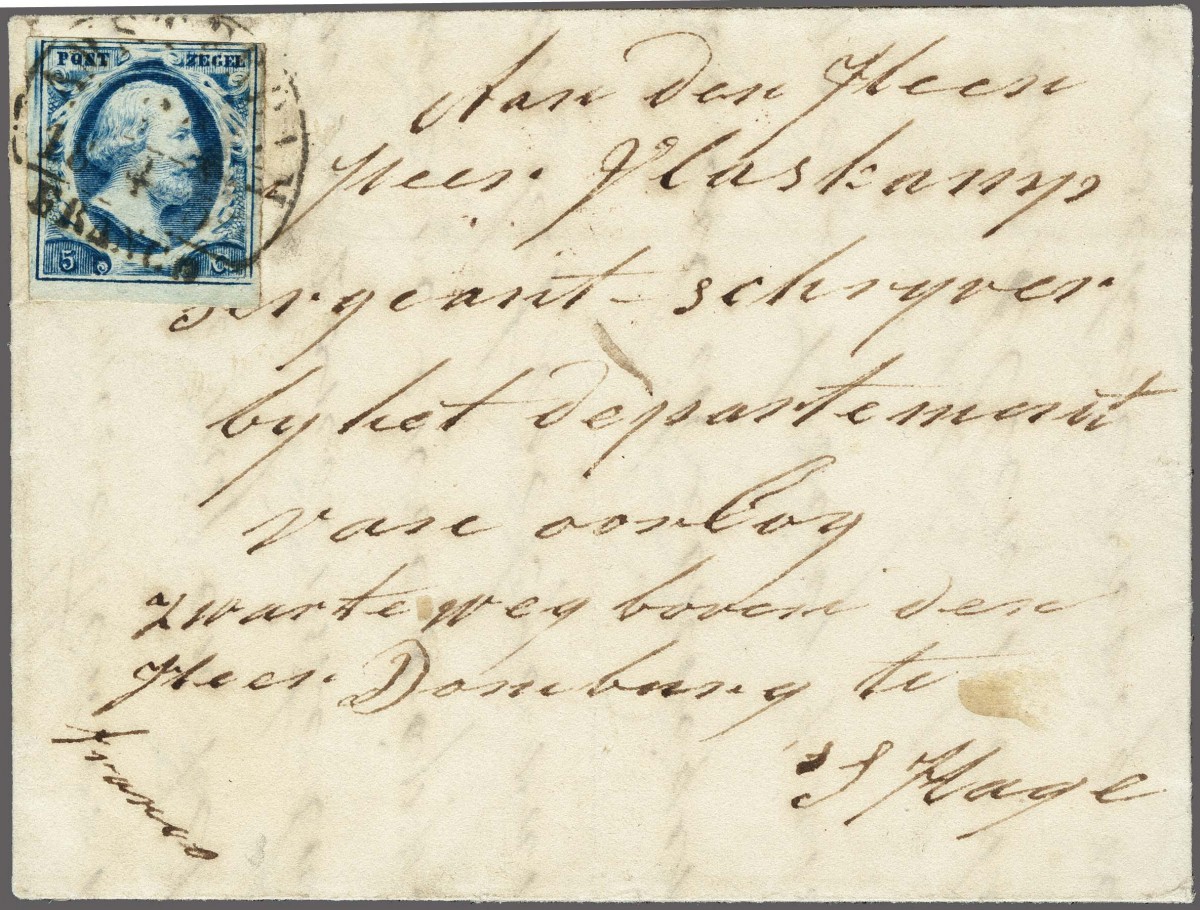 POST ZEGEL
AMSTERDAM
FRANCO
5 C
Aan den Heer
Heer Vlaskamp
sergeant-schryver
by het departement
van oorlog
zwarteweg boven den
Heer Domburg te
's Hage
franco